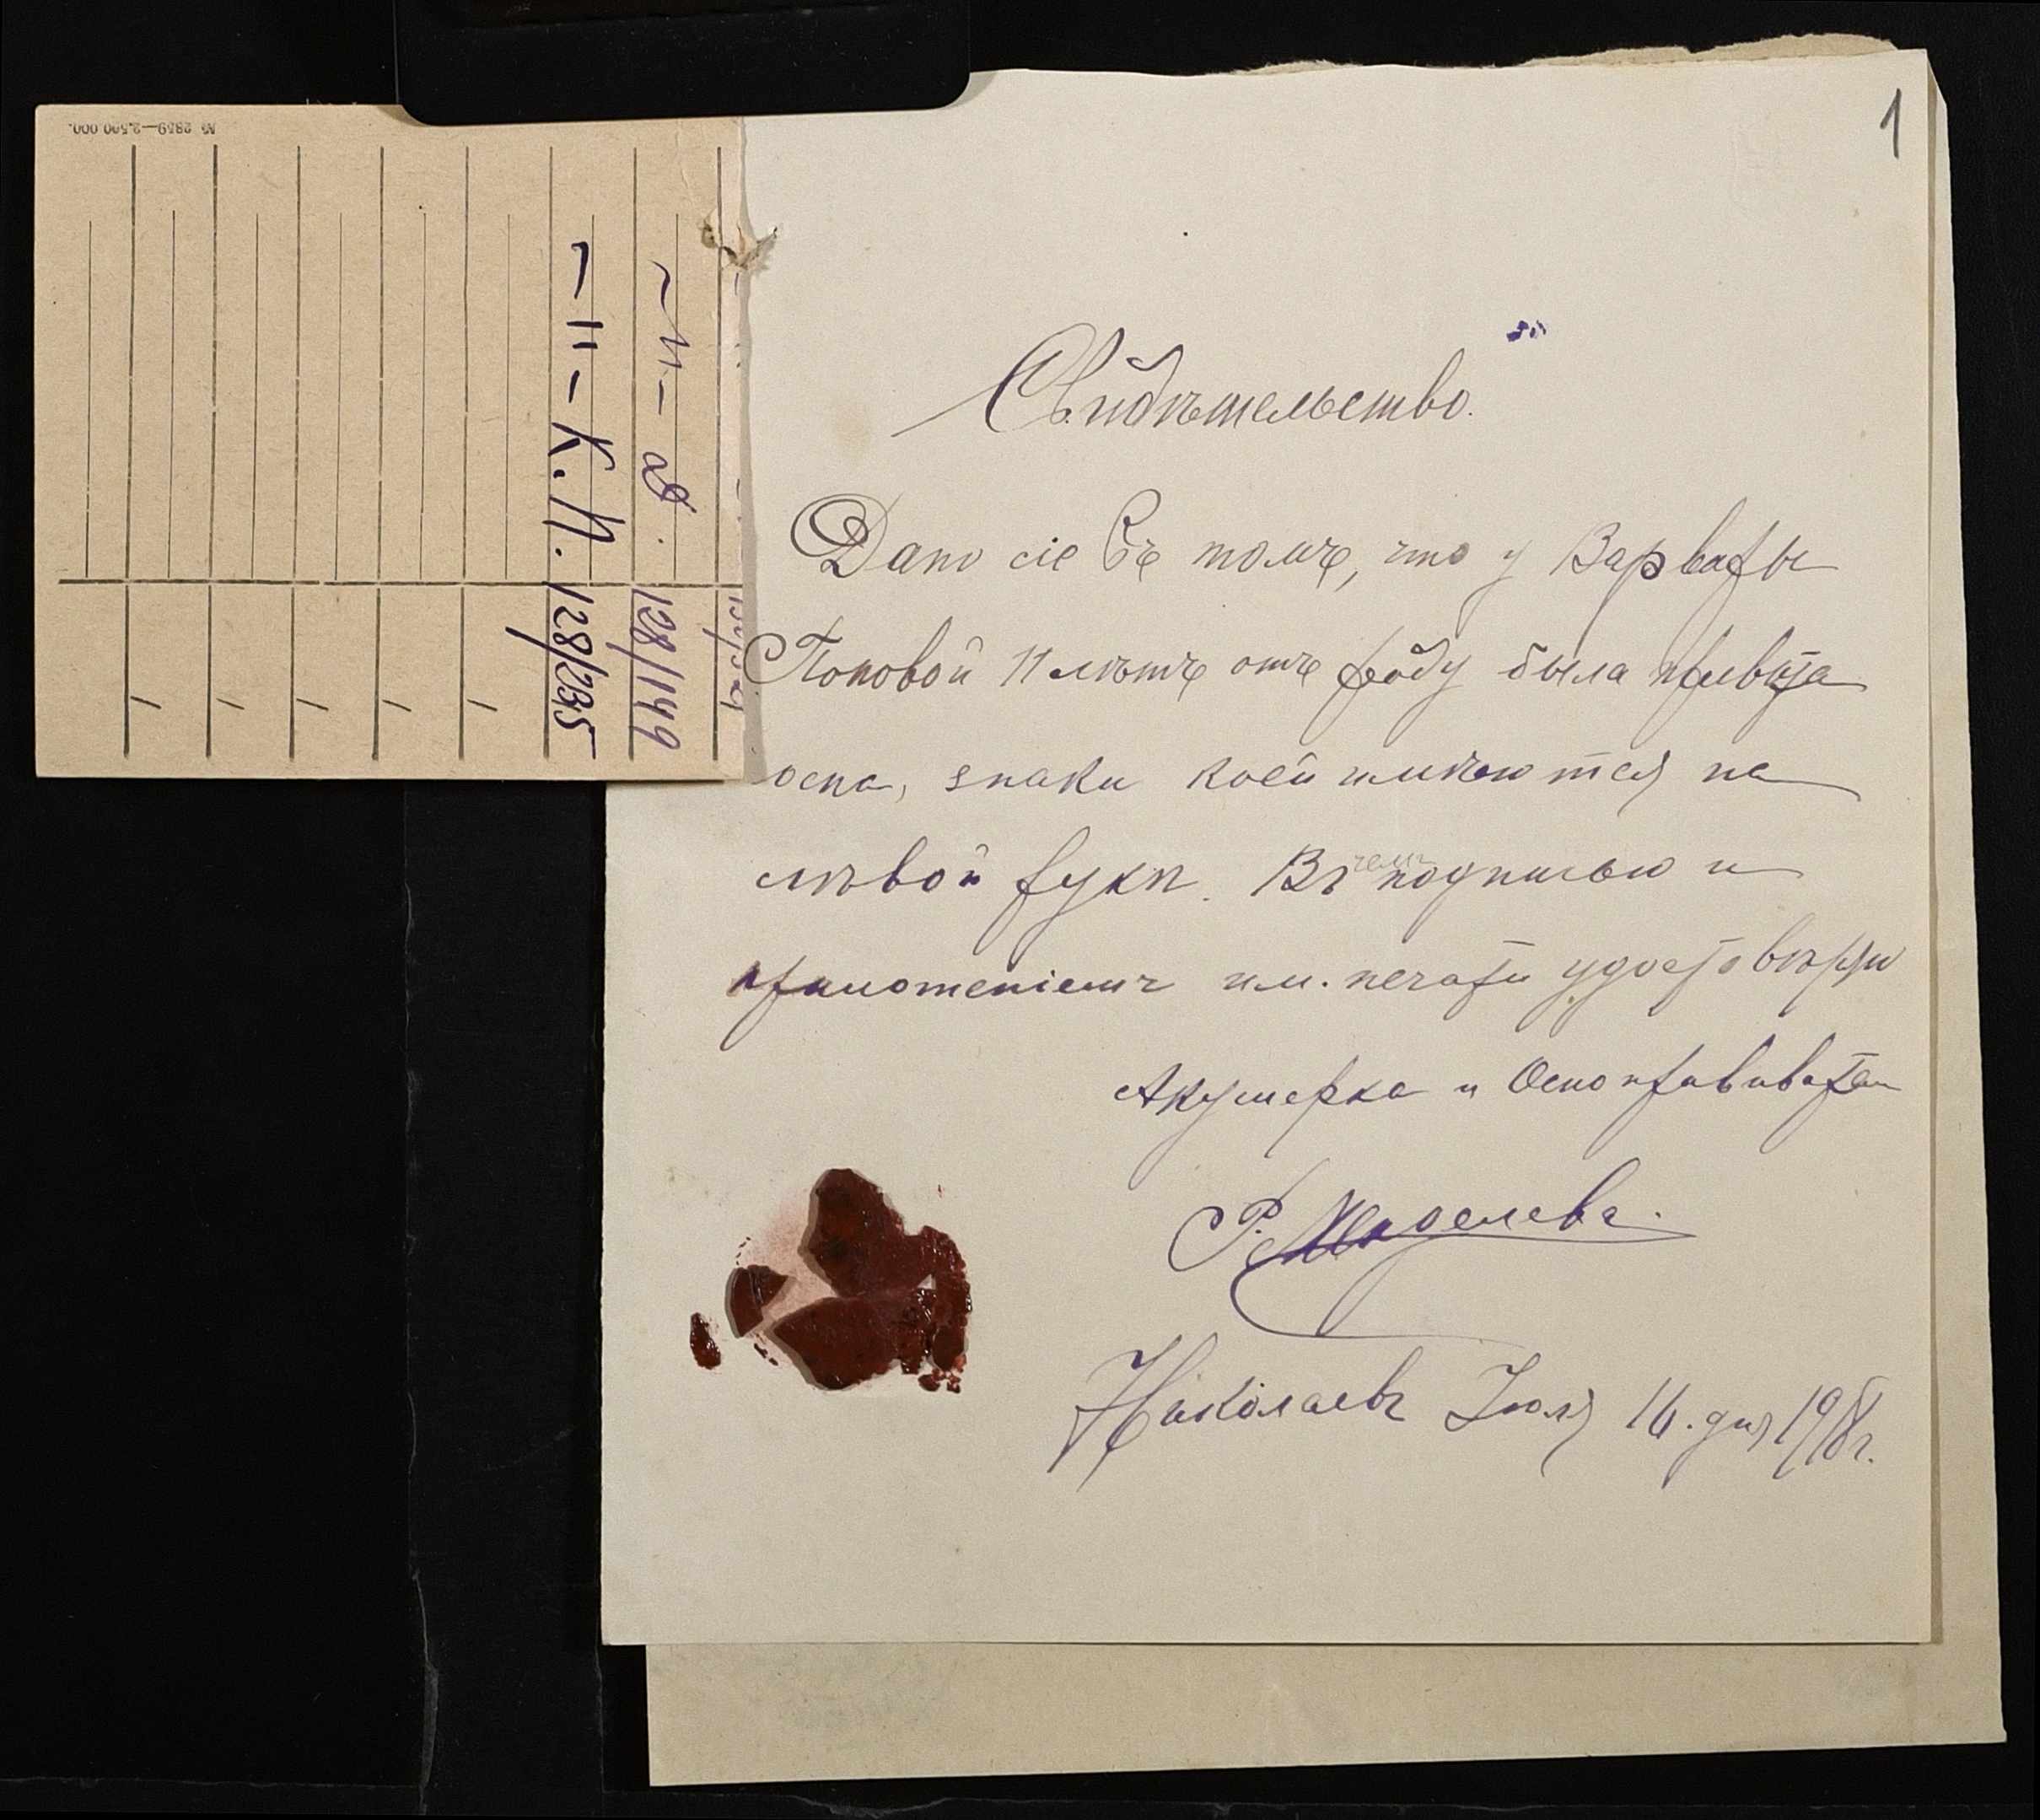 1
Свидѣтельство.
Дано сіе въ томъ, что у Варвары
Поповой 11 лѣтъ отъ роду была привита
оспа, знаки коей имѣются на
лѣвой руки. Въ чемъ подписью и
приложеніемъ им. печати удостовѣряю
Акушерка и Оспопрививатель
Николаевъ Іюля 16. дня 1918 г.
№ 2859—2.500 000.
128/149
— 11 — К. П. 128/235